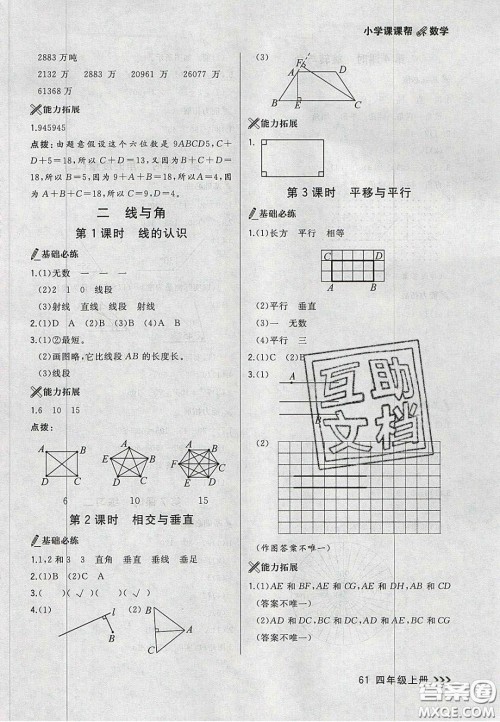 小学课课帮 数学
2883 万吨
2132 万 2883 万 20961 万 26077 万
61368 万
能力拓展
1.945945
点拨：由题意假设这个六位数是 9ABCD5，C+
D+5=18，所以 C+D=13，又因为 B+C+D=18，
所以 B=5，因为 9+A+B=18，所以 A=4，因
为 A+B+C=18，所以 C=9，D=4。
二 线与角
第 1 课时 线的认识
基础必练
1.(1)无数 一 一 一
(2)2 1 0 线段
(3)射线 直线 线段 射线
2.(1)D (2)B (3)C (4)B
3.(1)②最短。
(2)画图略，它比线段 AB 的长度长。
能力拓展
1.6 10 15
点拨：
A B D C
A B C D E
A B C D E F
6 10 15
第 2 课时 相交与垂直
基础必练
1.1,2 和 3 3 直角 垂直 垂线 垂足
2.(1)B (2)D (3)A
4.(1) l B (2) A B C
(3)
A D B E C
能力拓展
1.
第 3 课时 平移与平行
基础必练
1.(1)长方 平行 相等
A B C D
(2)平行 垂直
(3)一 无数
(4)平行 三
2.(1)C (2)B (3)
3.(1) A
(2)
(作图答案不唯一)
能力拓展
1.(1)AE 和 BF，AE 和 HG，AE 和 DH，AB 和 CD
(答案不唯一)
(2)AE 和 EH，AE 和 AD，AB 和 BC，BC 和 CG
(答案不唯一)
互助文档
61 四年级上册
答案圈
MXQE.COM